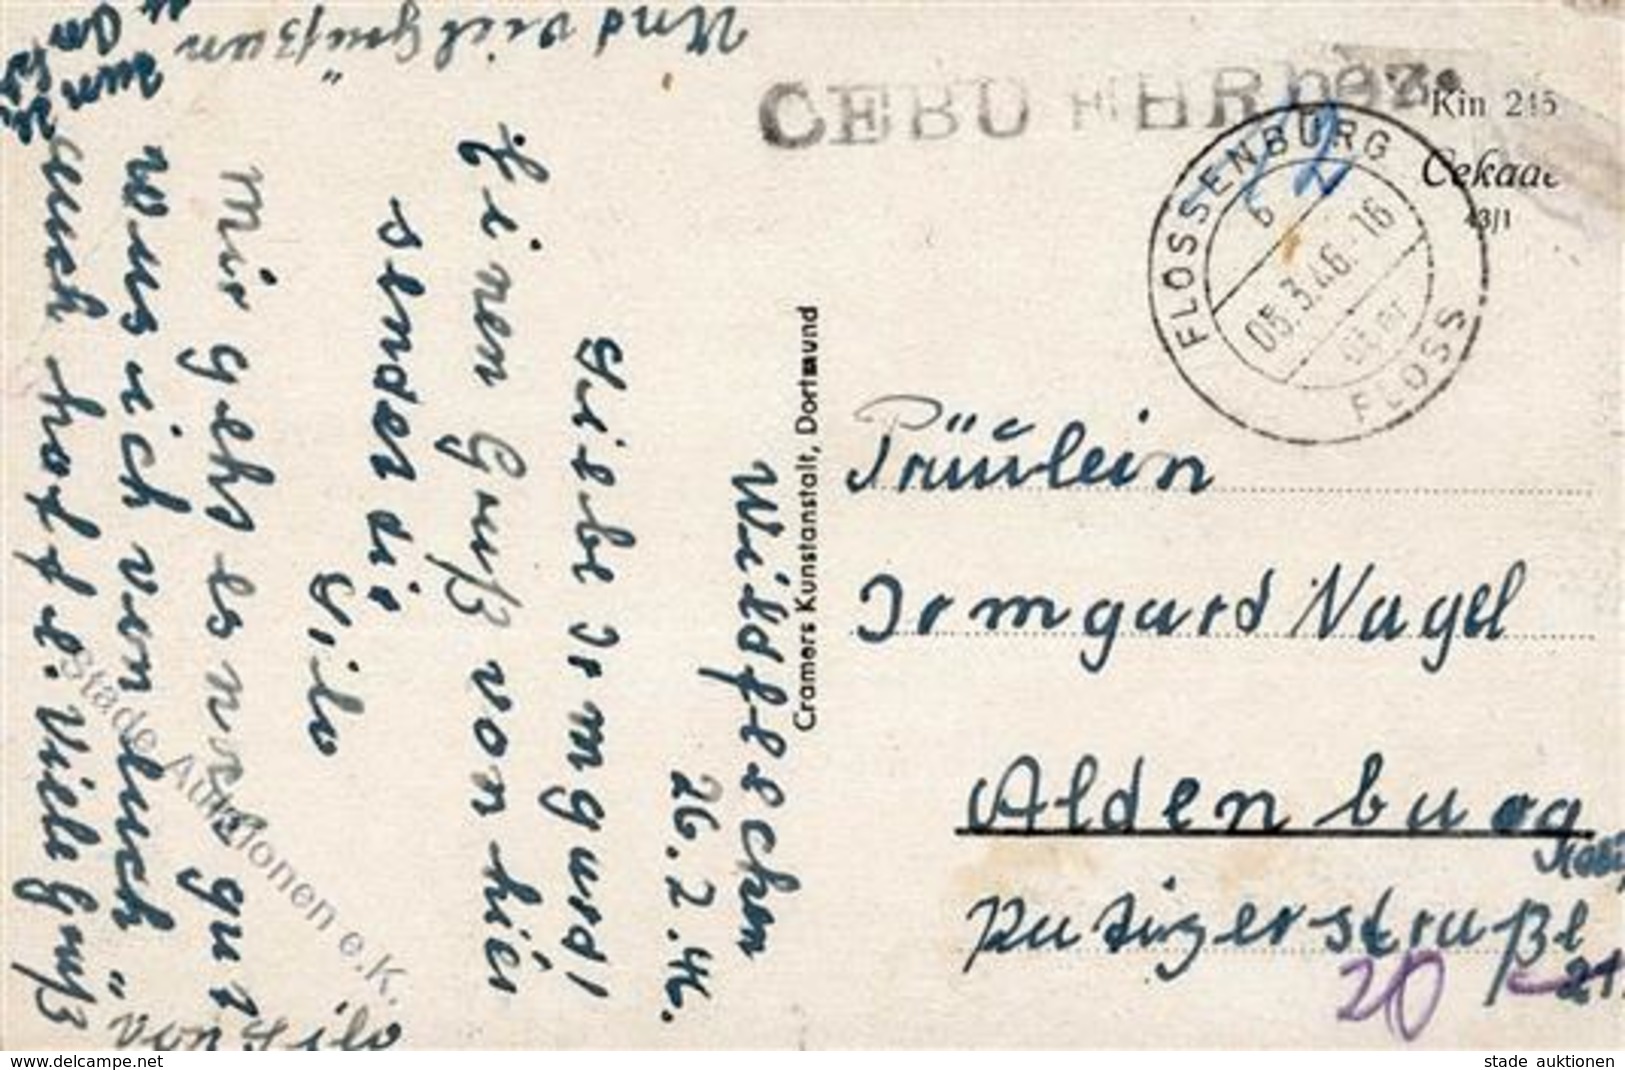 CEBÜHR bez.
Kin 245
Cekaде
43/1
FLOSSENBÜRG
b
05.3.46.-16
FLOSS
Fräulein
Irmgard Nagel
Aldenburg
straße
20
21
Cramers Kunstanstalt, Dortmund
26.2.46.
Liebe Irmgard!
Einen Gruß von hier
sendet dir
Lilo
Mir geht es noch gut
was ich von euch
auch hoffe. Viele Grüß
Und viel Grüß an
Stade Auktionen e.K.
www.delcampe.net
stade auktionen